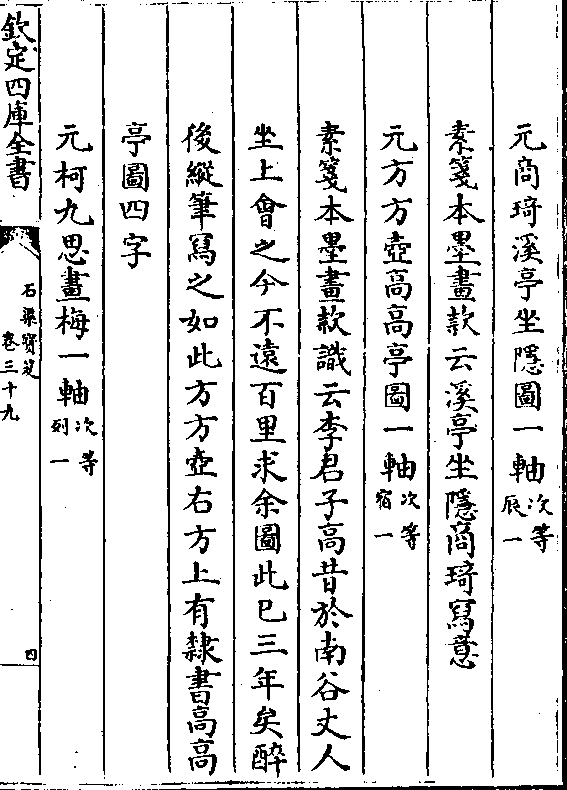 元商琦溪亭坐隱圖一軸次等辰一
素箋本墨畫款云溪亭坐隱商琦寫意
元方方壺高高亭圖一軸次等宿一
素箋本墨畫款識云李君子高昔於南谷丈人
坐上會之今不遠百里求余圖此已三年矣醉
後縱筆寫之如此方方壺右方上有隸書高高
亭圖四字
元柯九思畫梅一軸次等列一
欽定四庫全書
石渠寶笈
卷三十九
四